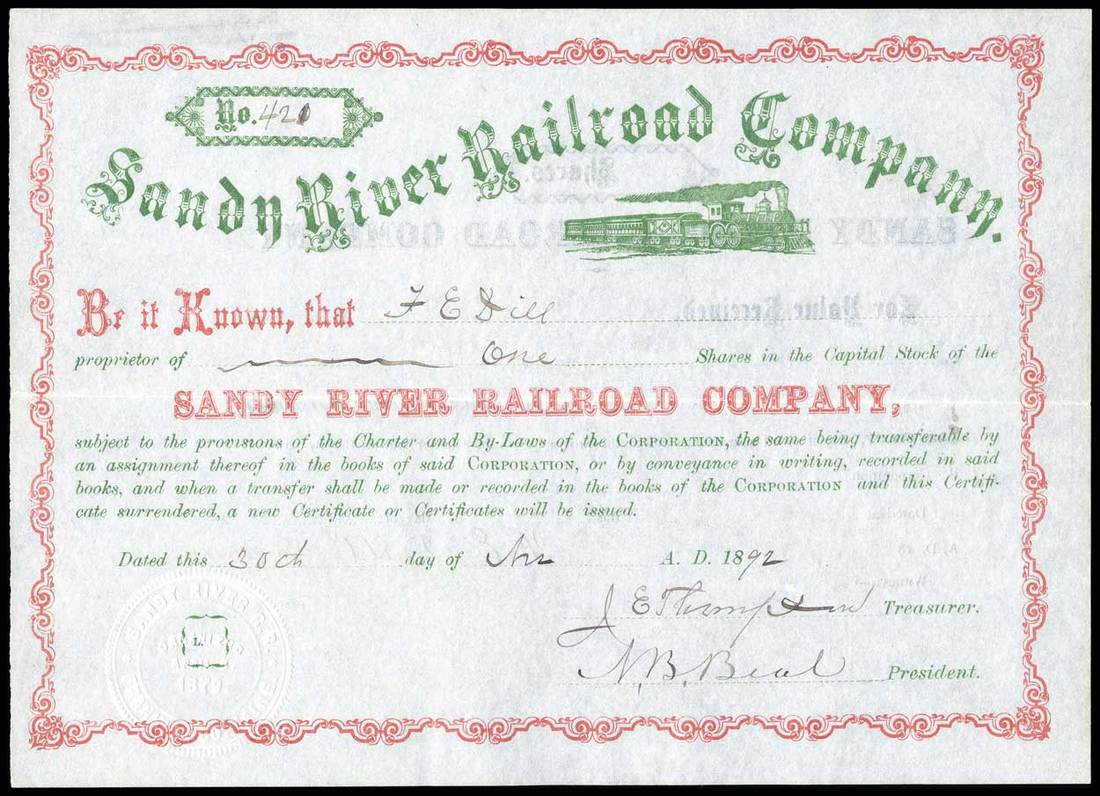 No. 420
Sandy River Railroad Company.
Be it Known, that F E Dill
proprietor of One Shares in the Capital Stock of the
SANDY RIVER RAILROAD COMPANY,
subject to the provisions of the Charter and By-Laws of the CORPORATION, the same being transferable by
an assignment thereof in the books of said CORPORATION, or by conveyance in writing, recorded in said
books, and when a transfer shall be made or recorded in the books of the CORPORATION and this Certifi-
cate surrendered, a new Certificate or Certificates will be issued.
Dated this 30th day of Nov A. D. 1892
J E Thompson Treasurer.
N. B. Beal President.
SANDY RIVER R.R.
L.
1879